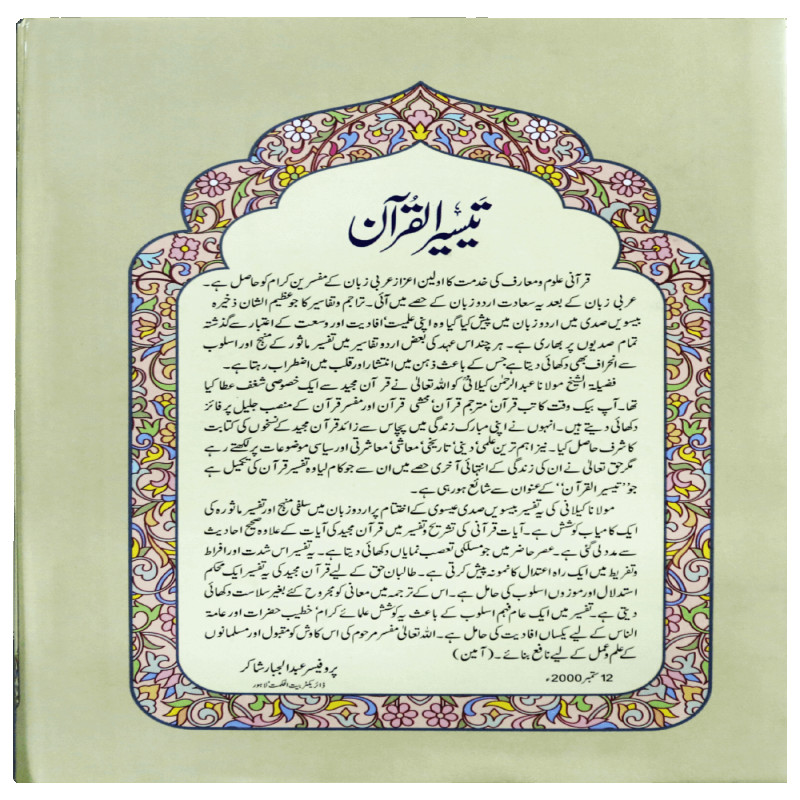 تَیسیرُ القُرآن
قرآنی علوم و معارف کی خدمت کا اولین اعزاز عربی زبان کے مفسرین کرام کو حاصل ہے۔
عربی زبان کے بعد یہ سعادت اردو زبان کے حصے میں آئی۔ تراجم و تفاسیر کا جو عظیم الشان ذخیرہ
بیسویں صدی میں اردو زبان میں پیش کیا گیا وہ اپنی علمیت‘ افادیت اور وسعت کے اعتبار سے گذشتہ
تمام صدیوں پر بھاری ہے۔ ہر چند اس عہد کی بعض اردو تفاسیر میں تفسیر ماثور کے منہج اور اسلوب
سے انحراف بھی دکھائی دیتا ہے جس کے باعث ذہن میں انتشار اور قلب میں اضطراب رہتا ہے۔
فضیلۃ الشیخ مولانا عبدالرحمٰن کیلانیؒ کو اللہ تعالیٰ نے قرآن مجید سے ایک خصوصی شغف عطا کیا
تھا۔ آپ بیک وقت کاتب قرآن‘ مترجم قرآن‘ محشی قرآن اور مفسر قرآن کے منصب جلیل پر فائز
دکھائی دیتے ہیں۔ انہوں نے اپنی مبارک زندگی میں پچاس سے زائد قرآن مجید کے نسخوں کی کتابت
کا شرف حاصل کیا۔ نیز اہم ترین علمی‘ دینی‘ تاریخی‘ معاشی‘ معاشرتی اور سیاسی موضوعات پر لکھتے رہے
مگر حق تعالیٰ نے ان کی زندگی کے انتہائی آخری حصے میں ان سے جو کام لیا وہ تفسیر قرآن کی تکمیل ہے
جو ’’تیسیر القرآن‘‘ کے عنوان سے شائع ہو رہی ہے۔
مولانا کیلانی کی یہ تفسیر بیسویں صدی عیسوی کے اختتام پر اردو زبان میں سلفی منہج اور تفسیر ماثورہ کی
ایک کامیاب کوشش ہے۔ آیات قرآنی کی تشریح و تفسیر میں قرآن مجید کی آیات کے علاوہ صحیح احادیث
سے مدد لی گئی ہے۔ عصر حاضر میں جو مسلکی تعصب نمایاں دکھائی دیتا ہے۔ یہ تفسیر اس شدت اور افراط
و تفریط میں ایک راہ اعتدال کا نمونہ پیش کرتی ہے۔ طالبان حق کے لیے قرآن مجید کی یہ تفسیر ایک محکم
استدلال اور موزوں اسلوب کی حامل ہے۔ اس کے ترجمہ میں معانی کو مجروح کئے بغیر سلاست دکھائی
دیتی ہے۔ تفسیر میں ایک عام فہم اسلوب کے باعث یہ کوشش علمائے کرام‘ خطیب حضرات اور عامۃ
الناس کے لیے یکساں افادیت کی حامل ہے۔ اللہ تعالیٰ مفسر مرحوم کی اس کاوش کو مقبول اور مسلمانوں
کے علم و عمل کے لیے نافع بنائے۔ (آمین)
پروفیسر عبدالجبار شاکر
12 ستمبر 2000ء
ڈائریکٹر بیت الحکمت‘ لاہور